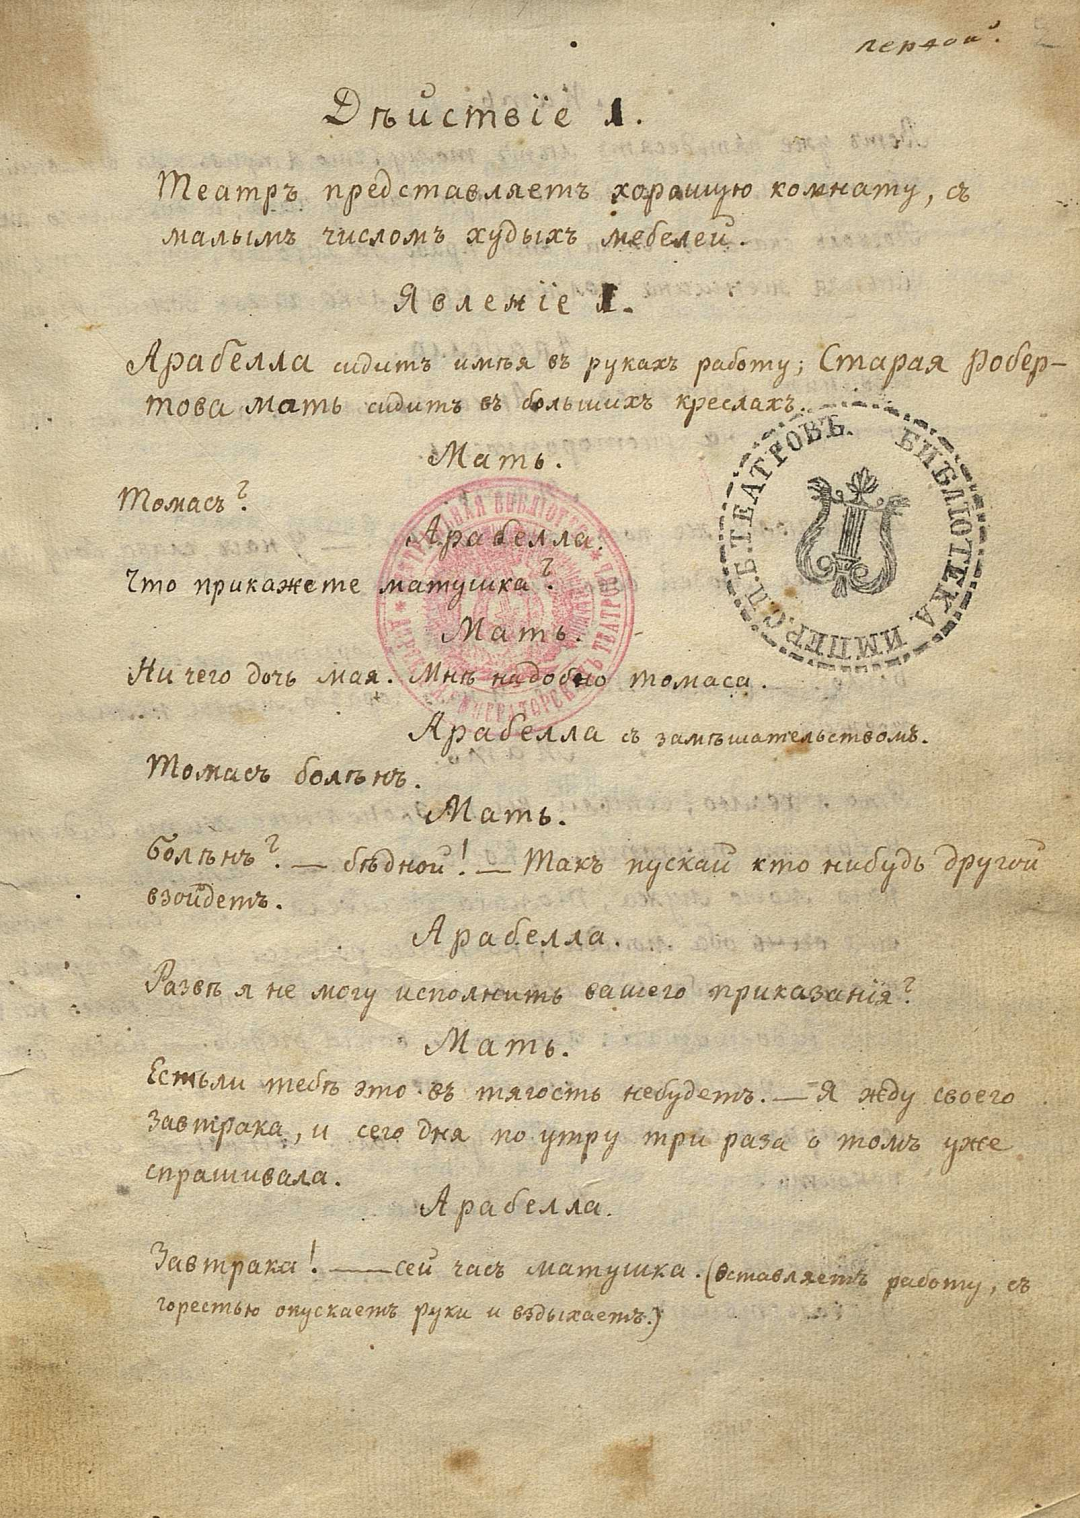 первой.
Дѣиствїе 1.
Театръ представляетъ хорашую комнату, съ
малымъ числомъ худыхъ мебелей.
Явленїе 1.
Арабелла сидитъ имѣя въ рукахъ работу; Старая Робер-
това мать сидитъ въ большихъ креслахъ.
Мать.
Томасъ?
Арабелла.
Что прикажете матушка?
Мать.
Ни чего дочь мая. Мнѣ надобно томаса.
Арабелла съ замѣшательствомъ.
Томасъ болѣнъ.
Мать.
Болѣнъ? — бѣдной! — Такъ пускай кто нибудь другой
взойдетъ.
Арабелла.
Развѣ я не могу исполнить вашего приказанїя?
Мать.
Естьли тебѣ это въ тягость небудетъ. — Я жду своего
завтрака, и сего дня по утру три раза о томъ уже
спрашивала.
Арабелла.
Завтрака! — сей часъ матушка. (оставляетъ работу, съ
горестью опускаетъ руки и вздыхаетъ.)
БИБЛІОТЕКА ИМПЕР. С.П.Б. ТЕАТРОВЪ.